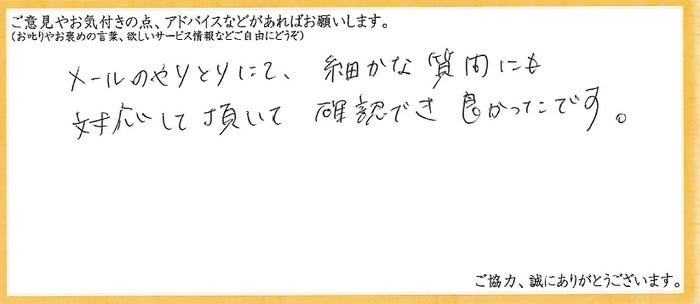 ご意見やお気付きの点、アドバイスなどがあればお願いします。
(お叱りやお褒めの言葉、欲しいサービス情報などご自由にどうぞ)
メールのやりとりにて、細かな質問にも
対応して頂いて確認でき良かったです。
ご協力、誠にありがとうございます。